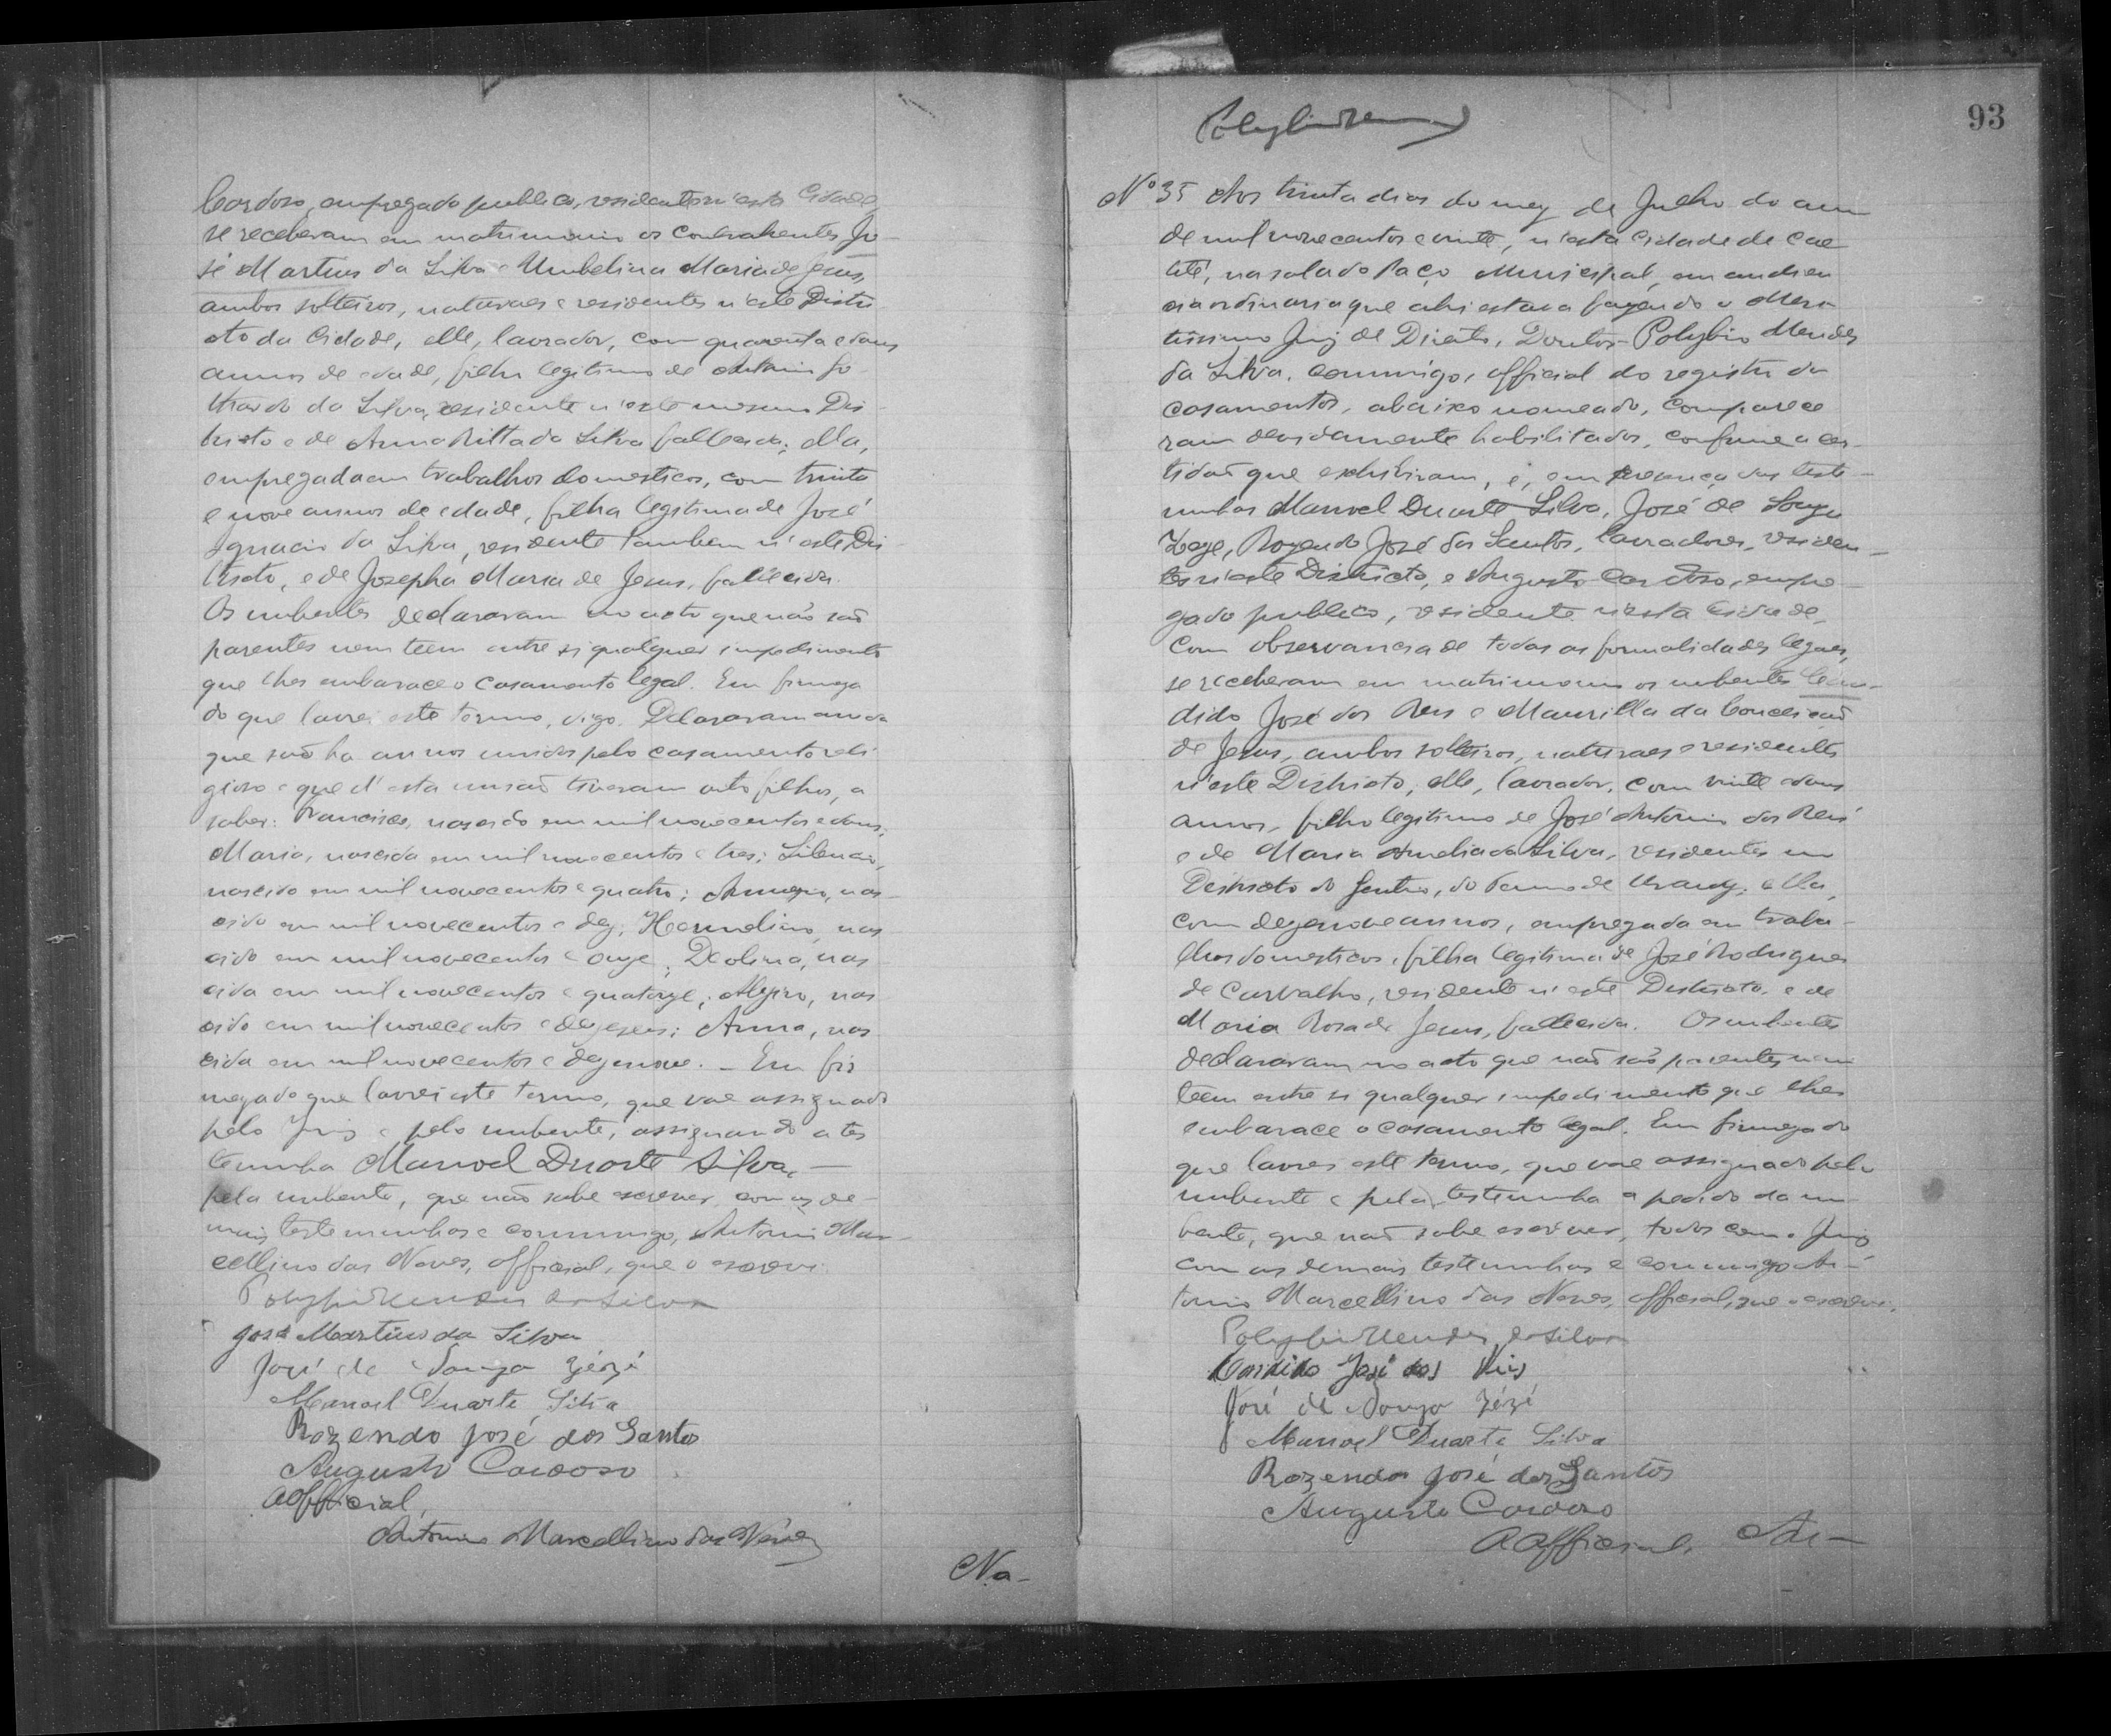 Cardoso, empregado publico, residente n'esta Cidade,
se receberam em matrimonio os contrahentes Jo-
sé Martins da Silva e Umbelina Maria de Jesus,
ambos solteiros, naturaes e residentes n'este Distri
cto da Cidade, elle, lavrador, com quarenta e dous
annos de edade, filho legitimo de Antonio
da Silva, residente n'este mesmo Dis-
tricto e de Anna Ritta da Silva fallecida; ella,
empregada em trabalhos domesticos, com trinta
e nove annos de edade, filha legitima de José
Ignacio da Silva, residente tambem n'este Dis
tricto, e de Josepha Maria de Jesus, fallecida.
Os nubentes declararam no acto que não são
parentes nem teem entre si qualquer impedimento
que lhes embarace o casamento legal. Em firmeza
do que lavrei este termo, digo, Declararam ainda
que são ha annos unidos pelo casamento reli
gioso e que d'esta união tiveram oito filhos, a
saber: Francisco, nascido em mil novecentos e dous;
Maria, nascida em mil novecentos e tres;
nascido em mil novecentos e quatro; nas-
cido em mil novecentos e dez; nas
cido em mil novecentos e onze; nas
cida em mil novecentos e quatorze; nas
cido em mil novecentos e dezeseis; Anna, nas
cida em mil novecentos e dezenove. – Em fir
meza do que lavrei este termo, que vae assignado
pelo Juiz e pelo nubente, assignando a tes
temunha Manoel Duarte Silva, –
pela nubente, que não sabe escrever, com as de-
mais testemunhas e commigo, Antonio Mar-
cellino das Neves, official, que o escrevi.
Polybio Mendes da Silva
José Martins da Silva
José de Souza Zézé
Manoel Duarte Silva
Rozendo José dos Santos
Augusto Cardoso
O official,
Antonio Marcellino das Neves
Na-
93
Nº 35 Aos trinta dias do mez de Julho do anno
de mil novecentos e vinte, n'esta Cidade de Cae
tité, na sala do Paço Municipal, em audien
cia ordinaria que ahi estava fazendo o Mere
tissimo Juiz de Direito, Doutor Polybio Mendes
da Silva, commigo, official do registro de
casamentos, abaixo nomeado, comparece
ram devidamente habilitados, conforme a cer-
tidão que exhibiram, e, em presença das teste-
munhas Manoel Duarte Silva, José de Souza
Zeze, Rozendo José dos Santos, lavradores, residen-
tes n'este Districto, e Augusto Cardoso, empre-
gado publico, residente n'esta Cidade,
com observancia de todas as formalidades legaes,
se receberam em matrimonio os nubentes Can-
dido José dos Reis e Maurilla da Conceição
de Jesus, ambos solteiros, naturaes e residentes
n'este Districto, elle, lavrador, com vinte e dous
annos, filho legitimo de José Antonio dos Reis
e de Maria Amelia da Silva, residentes no
Districto do Gentio, do Termo de Urandy; ella,
com dezenove annos, empregada em traba-
lhos domesticos, filha legitima de José Rodrigues
de Carvalho, residente n'este Districto, e de
Maria Rosa de Jesus, fallecida. Os nubentes
declararam no acto que não são parentes nem
teem entre si qualquer impedimento que lhes
embarace o casamento legal. Em firmeza do
que lavrei este termo, que vae assignado pelo
nubente e pela testemunha a pedido da nu
bente, que não sabe escrever, todos com o Juiz,
com as demais testemunhas e commigo An-
tonio Marcellino das Neves, official, que o escrevi.
Polybio Mendes da Silva
Candido José dos Reis
José de Souza Zézé
Manoel Duarte Silva
Rozendo José dos Santos
Augusto Cardoso
O official, An-